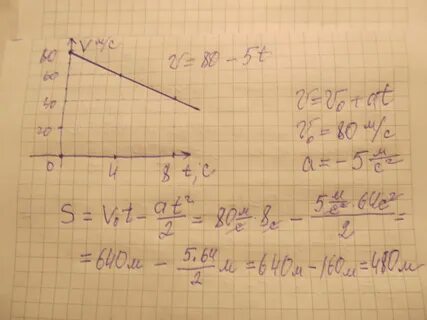 V м/с
80
60
30
20
0 4 8 t, с
v = 80 - 5t
v = v₀ + at
v₀ = 80 м/с
a = -5 м/с²
S = V₀t - at²/2 = 80 м/с · 8с - 5 м/с² · 64с²/2 =
= 640м - 5.64/2 м = 640м - 160м = 480м